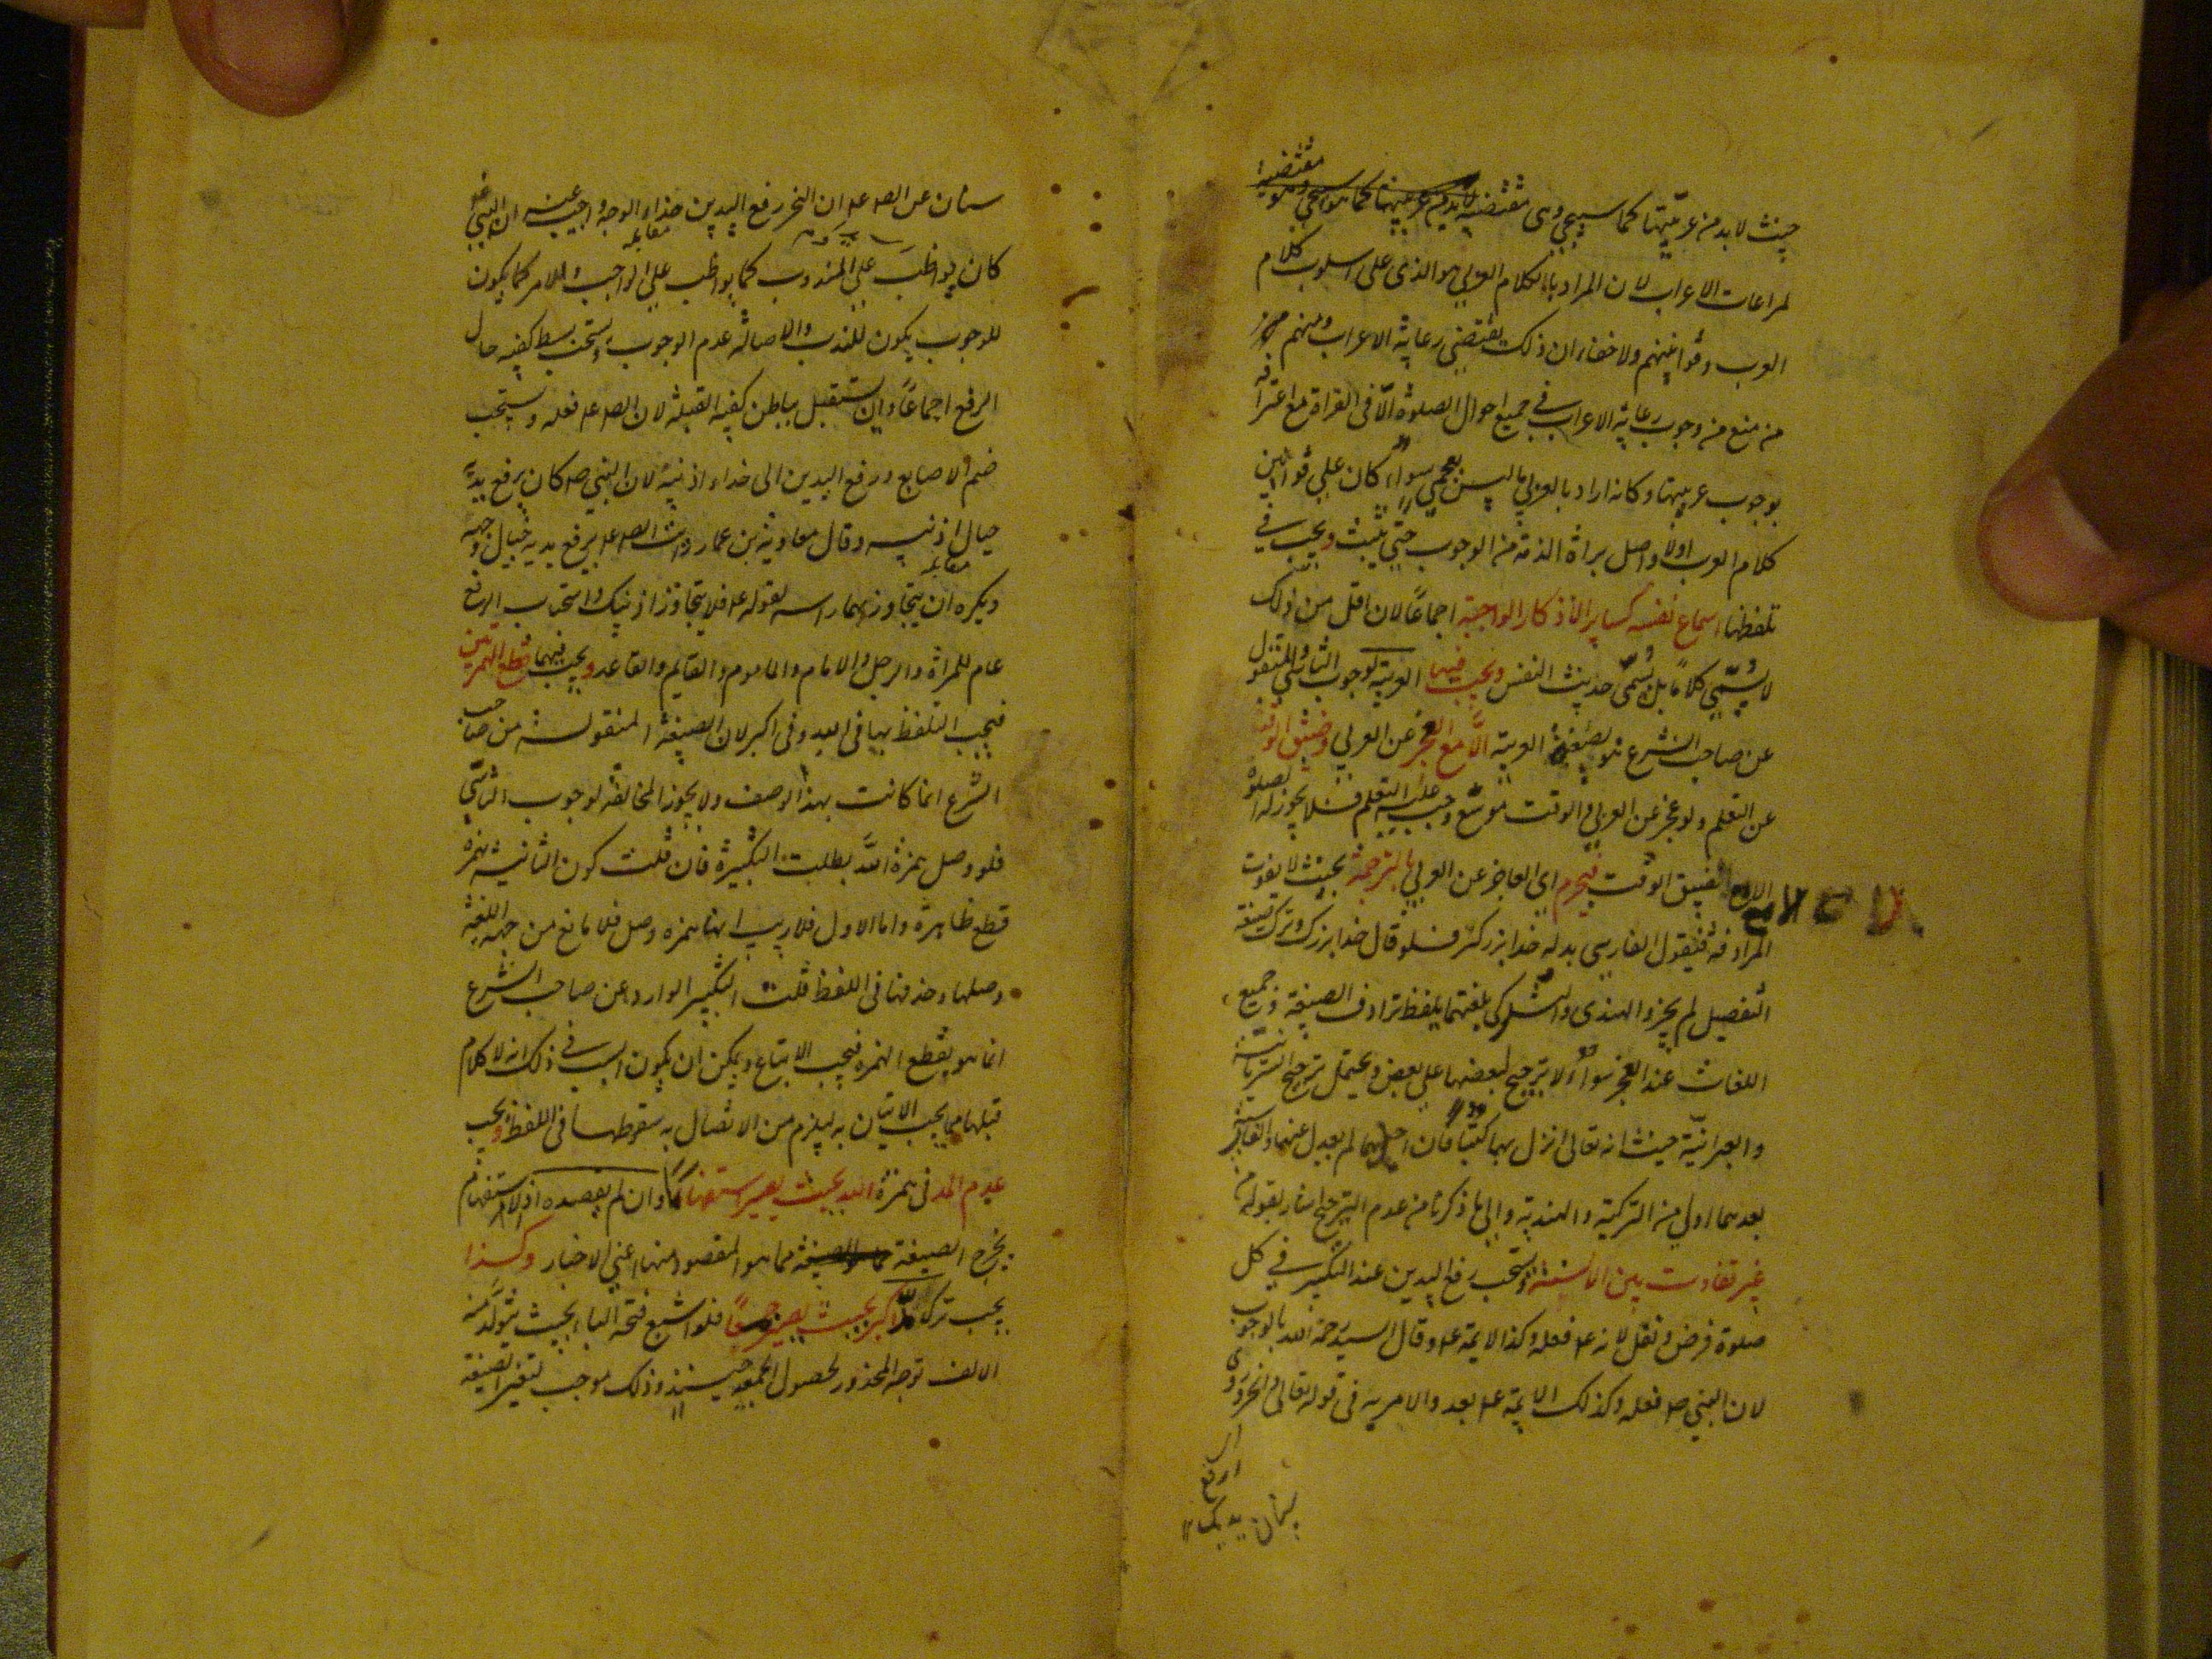 حيث لابد من عربيتها كما سيجي وهي مقتضية
لمراعات الاعراب لان المراد بالكلام العربي هو الذي على اسلوب كلام
العرب وقوانينهم ولا خفاء ان ذلك يقتضي رعاية الاعراب ومنهم
من منع من وجوب رعاية الاعراب في جميع احوال الصلوة الّا في القراة مع اعترافه
بوجوب عربيتها وكانه اراد بالعربي ما ليس بعجمي سواء كان على قوانين
كلام العرب اولا واصل براة الذمة من الوجوب حتى يثبت ويجب في
تلفظها اسماع نفسه كساير الاذكار الواجبة اجماعًا لان اقل من ذلك
لا يُسمّى كلامًا بل يُسمّى حديث النفس ويجب فيها العربية لوجوب التاسي والمنقول
عن صاحب الشرع هو بصيغة العربية الّا مع العجز عن العربي وضيق الوقت
عن التعلم ولو عجز عن العربي والوقت موسّع وجب عليه التعلم فلا يجوز له الصلوة
الا لضيق الوقت فيحرم اي العاجز عن العربي بالترجمة بحيث لا يفوت
المرادفة فيقول الفارسي بدله خدا بزركتر فلو قال خدا بزرك وترك صيغة
التفضيل لم يجز والهندي والتركي بلغتهما بلفظ ترادف الصيغة وجميع
اللغات عند العجز سواء ولا ترجيح لبعضها على بعض ويحتمل ترجيح السريانية
والعبرانيّة حيث انه تعالى انزل بهما كتبًا فان احل بهما لم يعدل عنهما والفارسية
بعدهما اولى من التركية والهندية والى ما ذكرنا من عدم الترجيح اشار بقوله من
غير تفاوت بين الالسنة ويستحب رفع اليدين عند التكبير في كل
صلوة فرض ونفل لانه عم فعله وكذا الايمة عم وقال السيد رحمه الله بالوجوب
لان النبي ص فعله وكذلك الايمة عم بعد والامر به في قوله تعالى وانحر وروى
اى
ارفع
يديك
سنان عن الص عم ان النحر رفع اليدين حذاء الوجه واجيب عنه ان النبي
كان يواظب على المندوب كما يواظب على الواجب والامر كما يكون
للوجوب يكون للندب والاصالة عدم الوجوب ويستحب بسط كفيه حال
الرفع اجماعًا وان يستقبل بباطن كفيه القبلة لان الص عم فعله ويستحب
ضم الاصابع ورفع اليدين الى حذاء اذنيه لان النبي ص كان يرفع يديه
حيال اذنيه وقال معاوية بن عمار رايت الص عم يرفع يديه حيال وجهه
ويكره ان يتجاوز بهما راسه لقوله عم فلا يتجاوز اذنيك واستحباب الرفع
عام للمراة والرجل والامام والماموم والقايم والقاعد ويجب فيهما قطع الهمزتين
فيجب التلفظ بها في الله وفي اكبر لان الصيغة المنقولة من صاحب
الشرع انما كانت بهذا الوصف ولا يجوز المخالفة لوجوب التاسّي
فلو وصل همزة الله بطلت التكبيرة فان قلت كون الثانية همزة
قطع ظاهرة واما الاول فلا ريب انها همزه وصل فلا مانع من جهة اللغة
وصلها وحذفها في اللفظ قلت التكبير الوارد عن صاحب الشرع
انما هو بقطع الهمزه فيجب الاتباع ويمكن ان يكون السر في ذلك انه لا كلام
قبلها مما يجب الاتيان به ليلزم من الاتصال به سقوطها في اللفظ ويجب
عدم المد في همزة الله بحيث يصير استفهامًا وان لم يقصده اذ الاستفهام
يخرج الصيغة مما هو المقصود منها اعني الاخبار وكذا
يجب ترك مدّ اكبر بحيث يصير جمعًا فلو اشبع فتحة الباء بحيث يتولد منه
الالف توجه المحذور لحصول الجمعية حينئذ وذلك موجب لتغير الصيغة